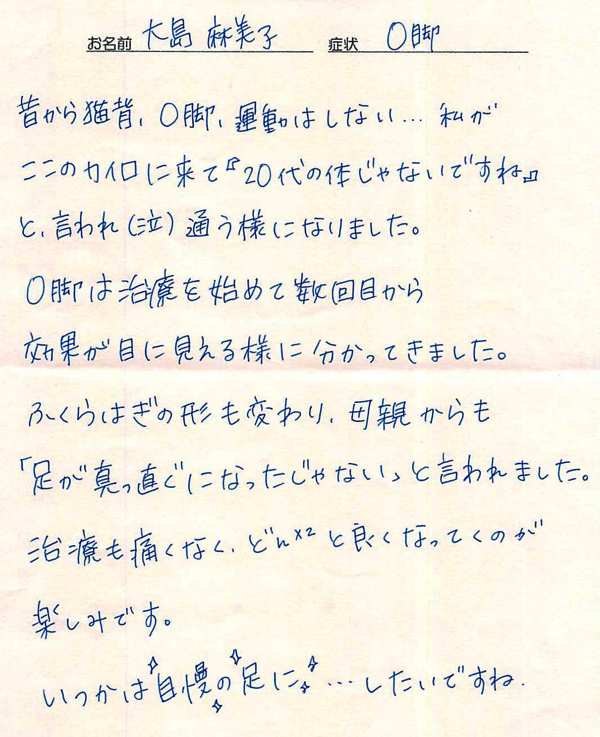 お名前 大島 麻美子 症状 O脚
昔から猫背、O脚、運動はしない… 私が
ここのカイロに来て『20代の体じゃないですね』
と、言われ(泣)通う様になりました。
O脚は治療を始めて数回目から
効果が目に見える様に分かってきました。
ふくらはぎの形も変わり、母親からも
「足が真っ直ぐになったじゃない」と言われました。
治療も痛くなく、どん×2と良くなってくのが
楽しみです。
いつかは自慢の足に…したいですね.